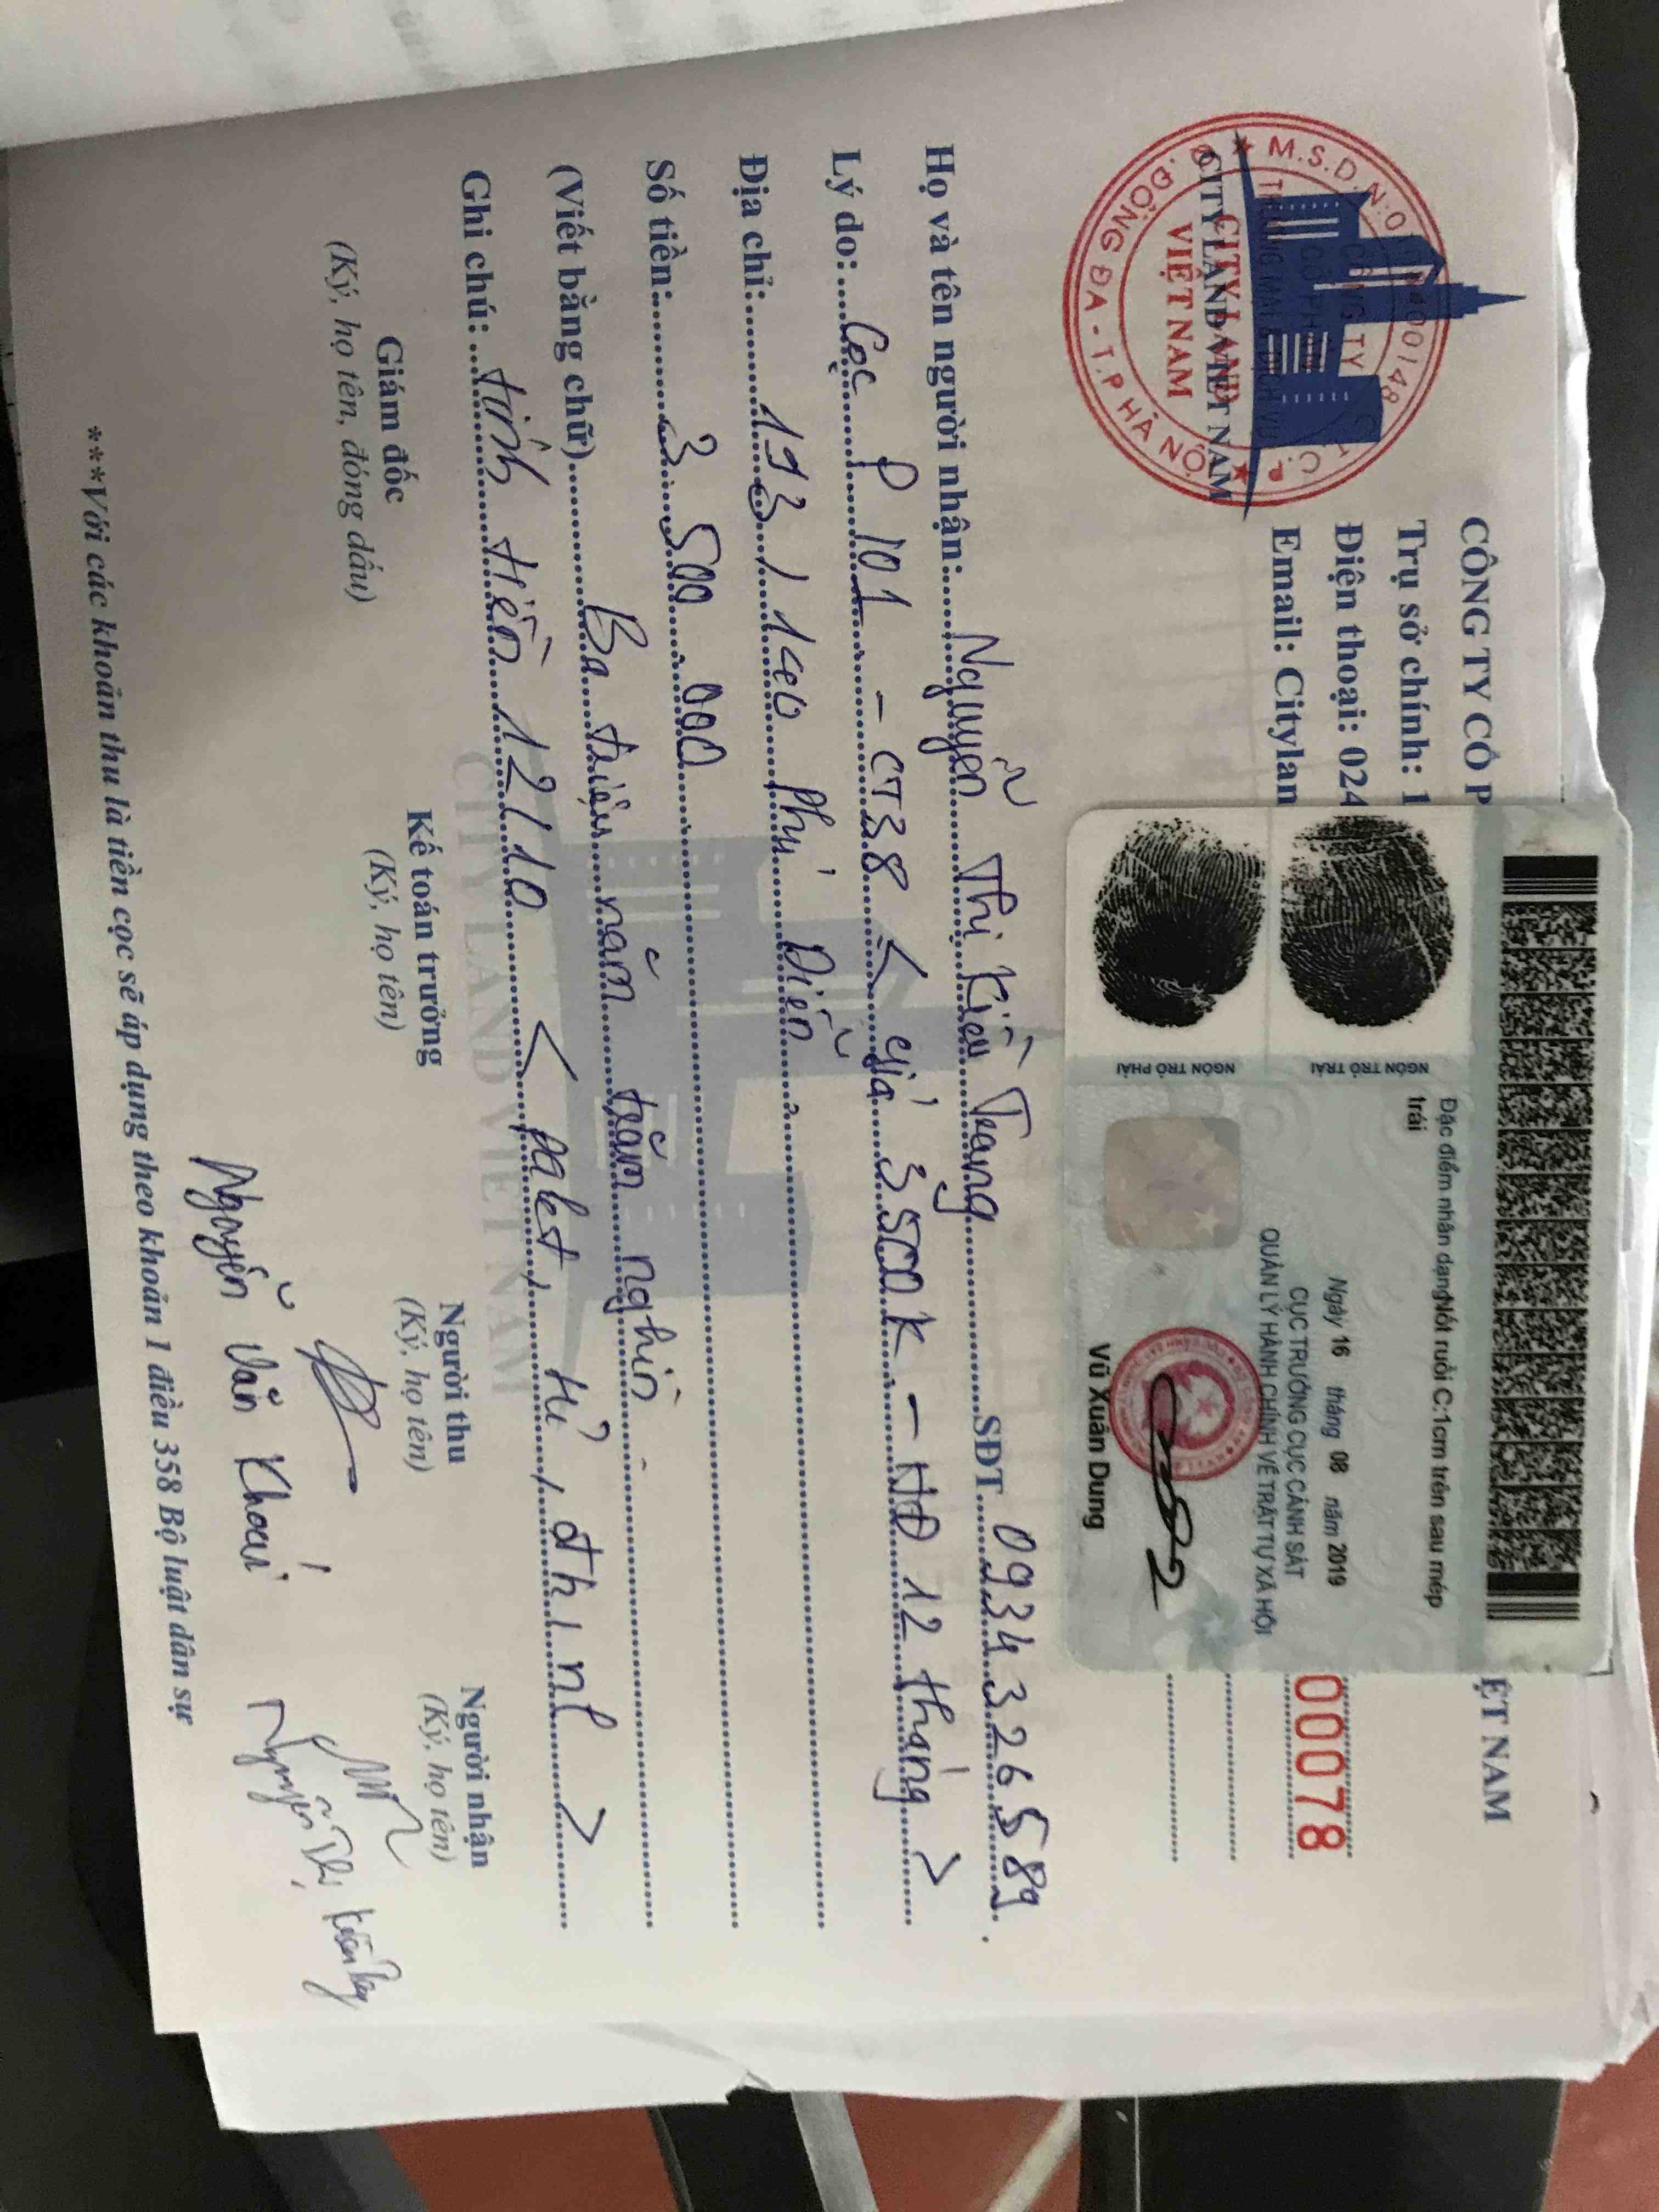 CÔNG TY CỔ P
ỆT NAM
Trụ sở chính: 1
Điện thoại: 024
Email: Citylan
00078
M.S.D.N:
CÔNG TY
CỔ PHẦN
THƯƠNG MẠI & DỊCH VỤ
CITY LAND
VIỆT NAM
Q. ĐỐNG ĐA - T.P HÀ NỘI
CITY LAND VIET NAM
Đặc điểm nhân dạng Nốt ruồi C:1cm trên sau mép
trái
NGÓN TRỎ TRÁI
NGÓN TRỎ PHẢI
Ngày 16 tháng 08 năm 2019
CỤC TRƯỞNG CỤC CẢNH SÁT
QUẢN LÝ HÀNH CHÍNH VỀ TRẬT TỰ XÃ HỘI
Vũ Xuân Dung
Họ và tên người nhận: Nguyễn Thị Kiều Trang SĐT 0934326589
Lý do: Cọc P 101 - CT38 < giá 3500k - HĐ 12 tháng >
Địa chỉ: 193/140 Phú Diễn
Số tiền: 3.500.000
(Viết bằng chữ) Ba triệu năm trăm nghìn
Ghi chú: tính tiền 12/10 < palet, tủ, đh, nl >
CITY LAND VIET NAM
Giám đốc
(Ký, họ tên, đóng dấu)
Kế toán trưởng
(Ký, họ tên)
Người thu
(Ký, họ tên)
Người nhận
(Ký, họ tên)
Nguyễn Văn Khoái
Nguyễn Thị Kiều Trang
***Với các khoản thu là tiền cọc sẽ áp dụng theo khoản 1 điều 358 Bộ luật dân sự